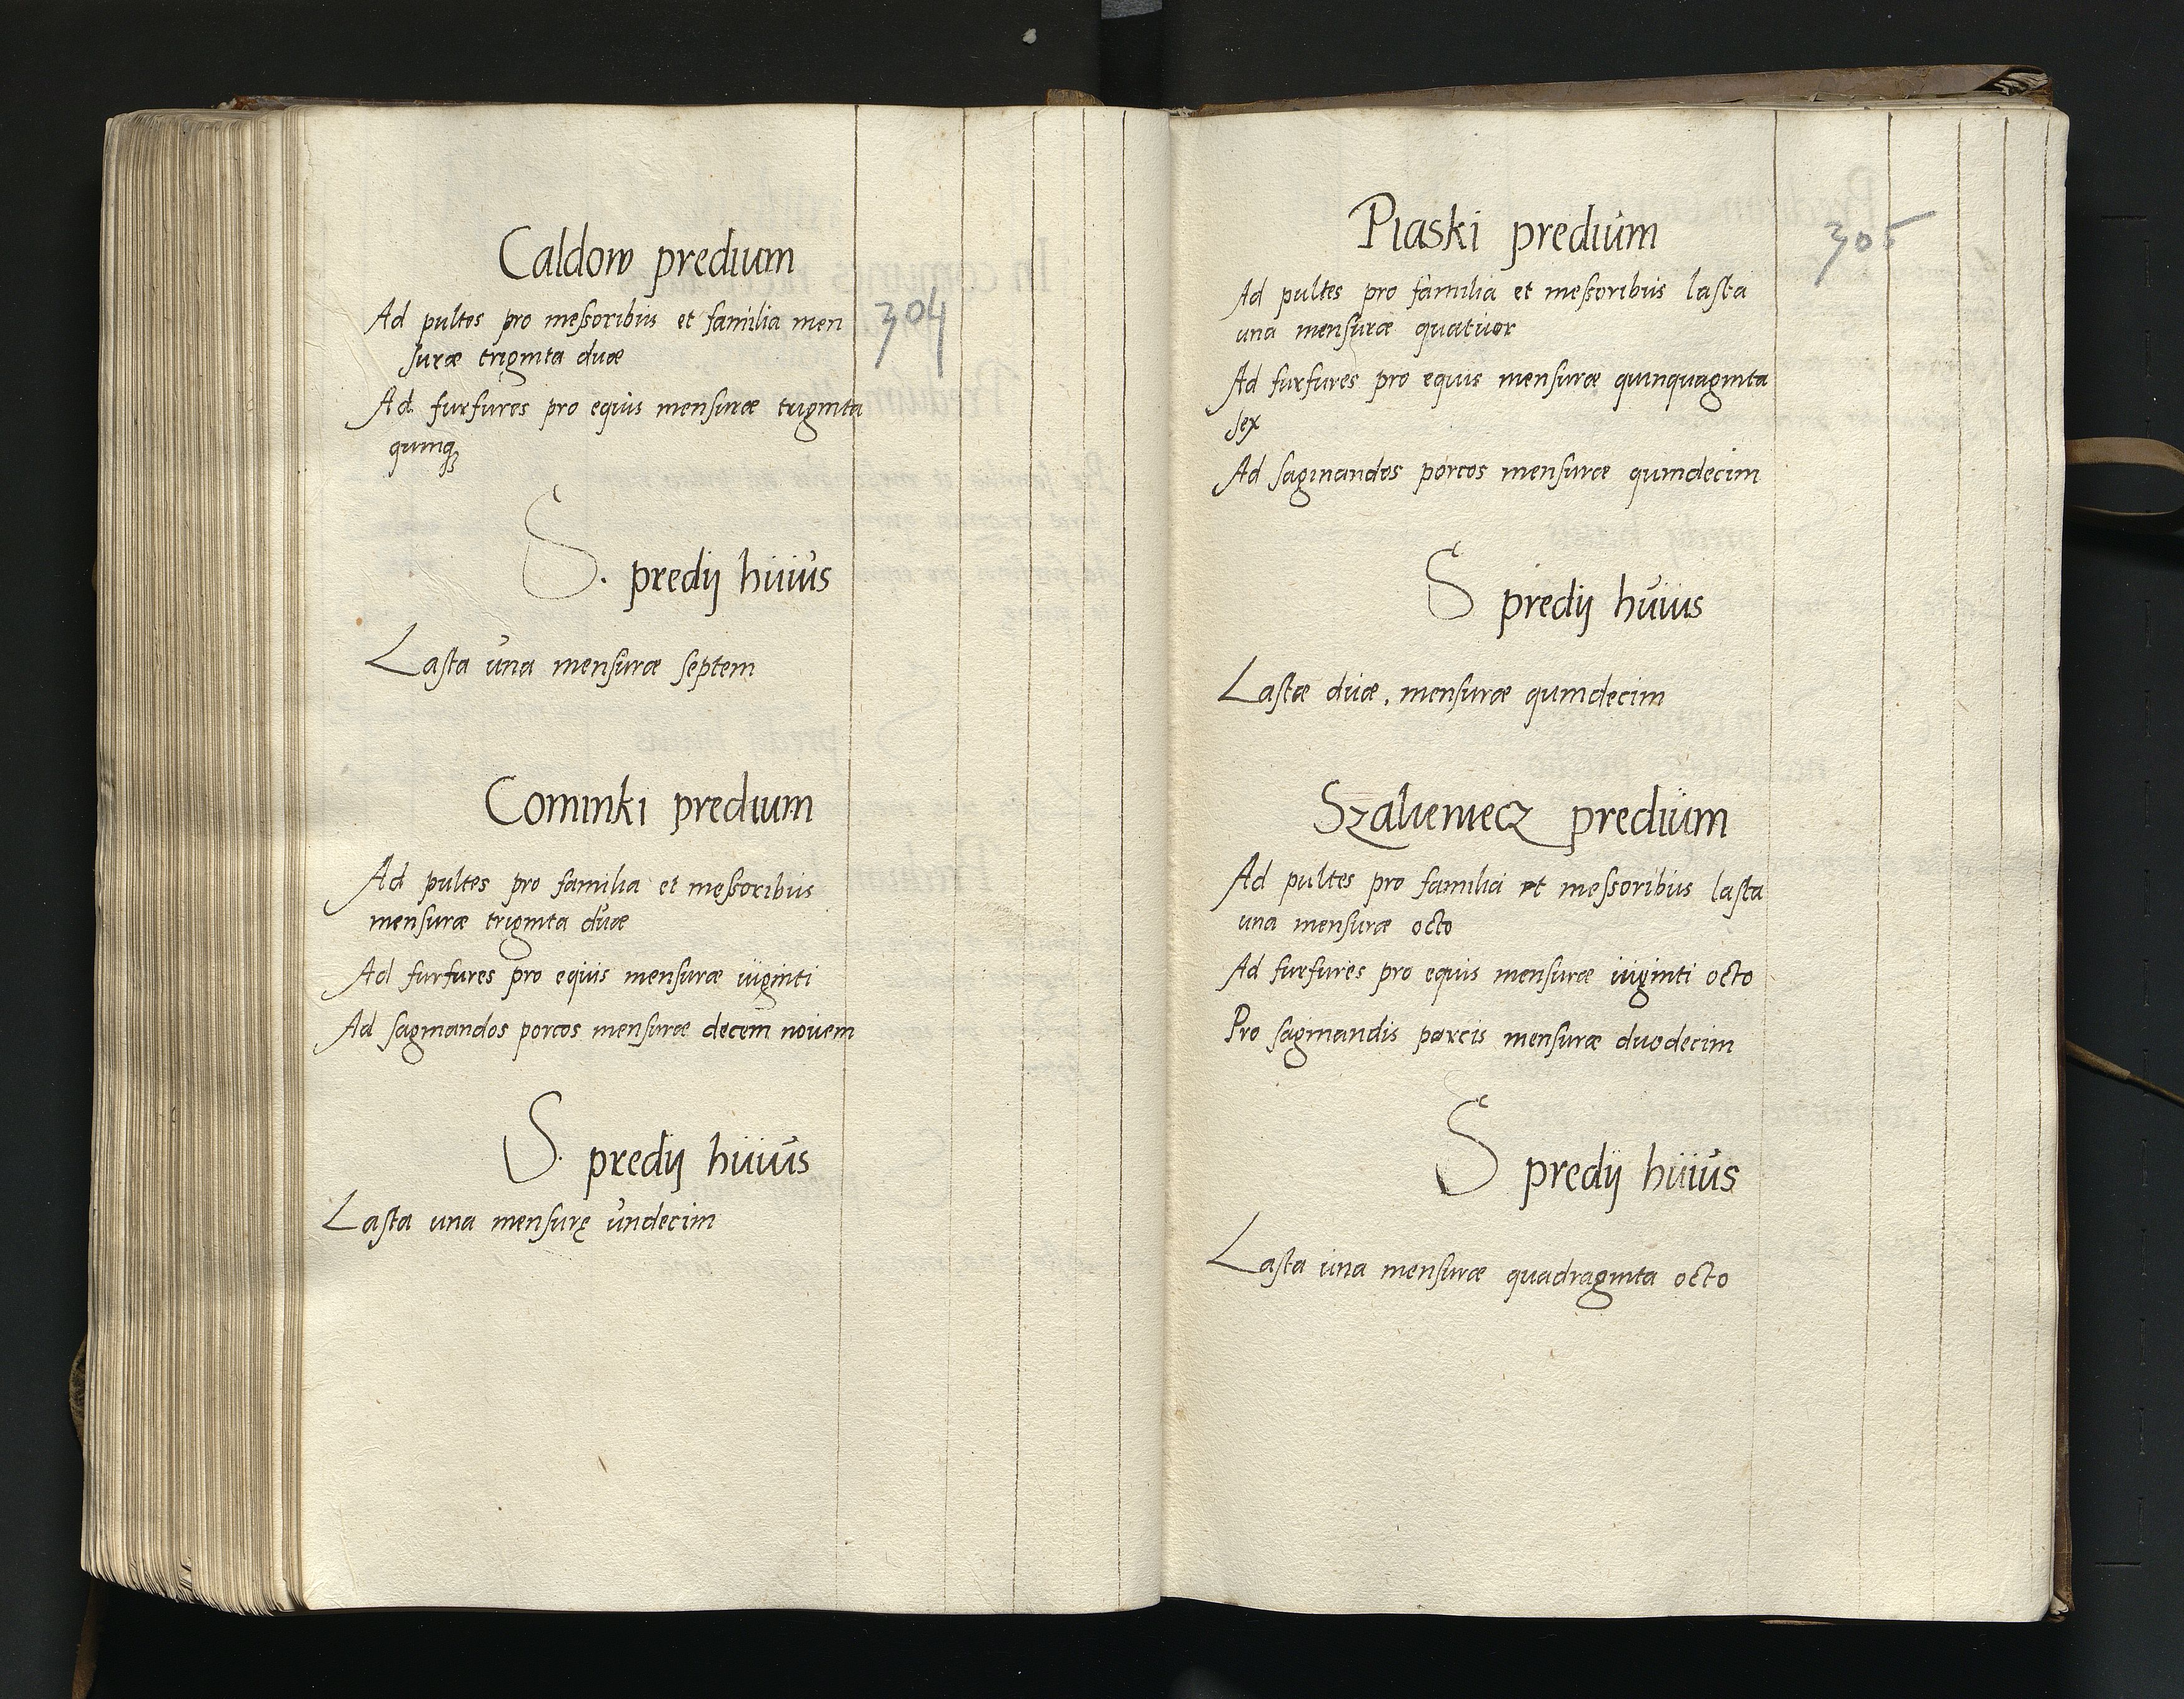 Caldow predium
304
Ad pultes pro messoribus et familia men
suræ triginta duæ
Ad furfures pro equis mensuræ triginta
quinq3
S. predij huius
Lasta una mensuræ septem
Cominki predium
Ad pultes pro familia et messoribus
mensuræ triginta duæ
Ad furfures pro equis mensuræ uiginti
Ad saginandos porcos mensuræ decem nouem
S. predij huius
Lasta una mensurę undecim
Piaski predium
305
Ad pultes pro familia et messoribus lasta
una mensuræ quatuor
Ad furfures pro equis mensuræ quinquaginta
sex
Ad saginandos porcos mensuræ quindecim
S predij huius
Lastæ duæ, mensuræ quindecim
Szalieniecz predium
Ad pultes pro familia et messoribus lasta
una mensuræ octo
Ad furfures pro equis mensuræ uiginti octo
Pro saginandis porcis mensuræ duodecim
S predij huius
Lasta una mensuræ quadraginta octo